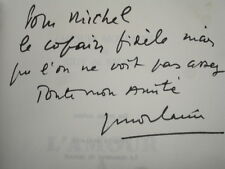 Pour Michel
le copain fidèle mais
que l'on ne voit pas assez
Toute mon amitié
L'AMOUR